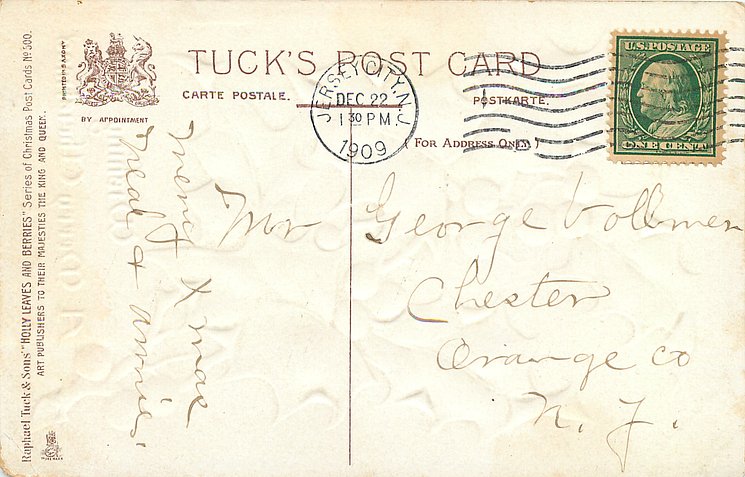 TUCK'S POST CARD
CARTE POSTALE.
POSTKARTE.
(FOR ADDRESS ONLY.)
PRINTED IN SAXONY
BY APPOINTMENT
Raphael Tuck & Sons' "HOLLY LEAVES AND BERRIES" Series of Christmas Post Cards No 500.
ART PUBLISHERS TO THEIR MAJESTIES THE KING AND QUEEN.
JERSEY CITY, N.J.
DEC 22
1 30 PM.
1909
U.S. POSTAGE
ONE CENT
Merry Xmas
Neal & Annie.
Mr George Vollmer
Chester
Orange Co
N. Y.